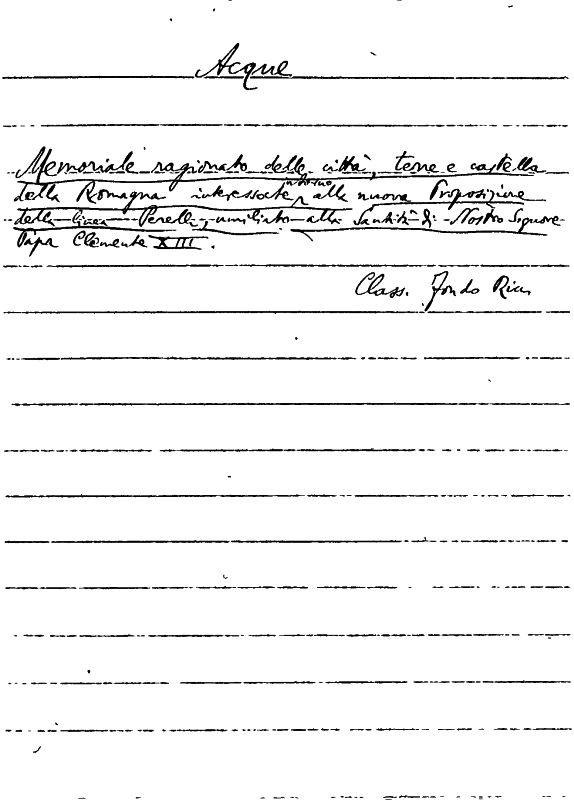 Acque
Memoriale ragionato delle città, terre e castella
della Romagna interessate intorno alla nuova Proposizione
della linea Perelli, umiliato alla Santità di Nostro Signore
Papa Clemente XIII.
Class. Fondo Ricci